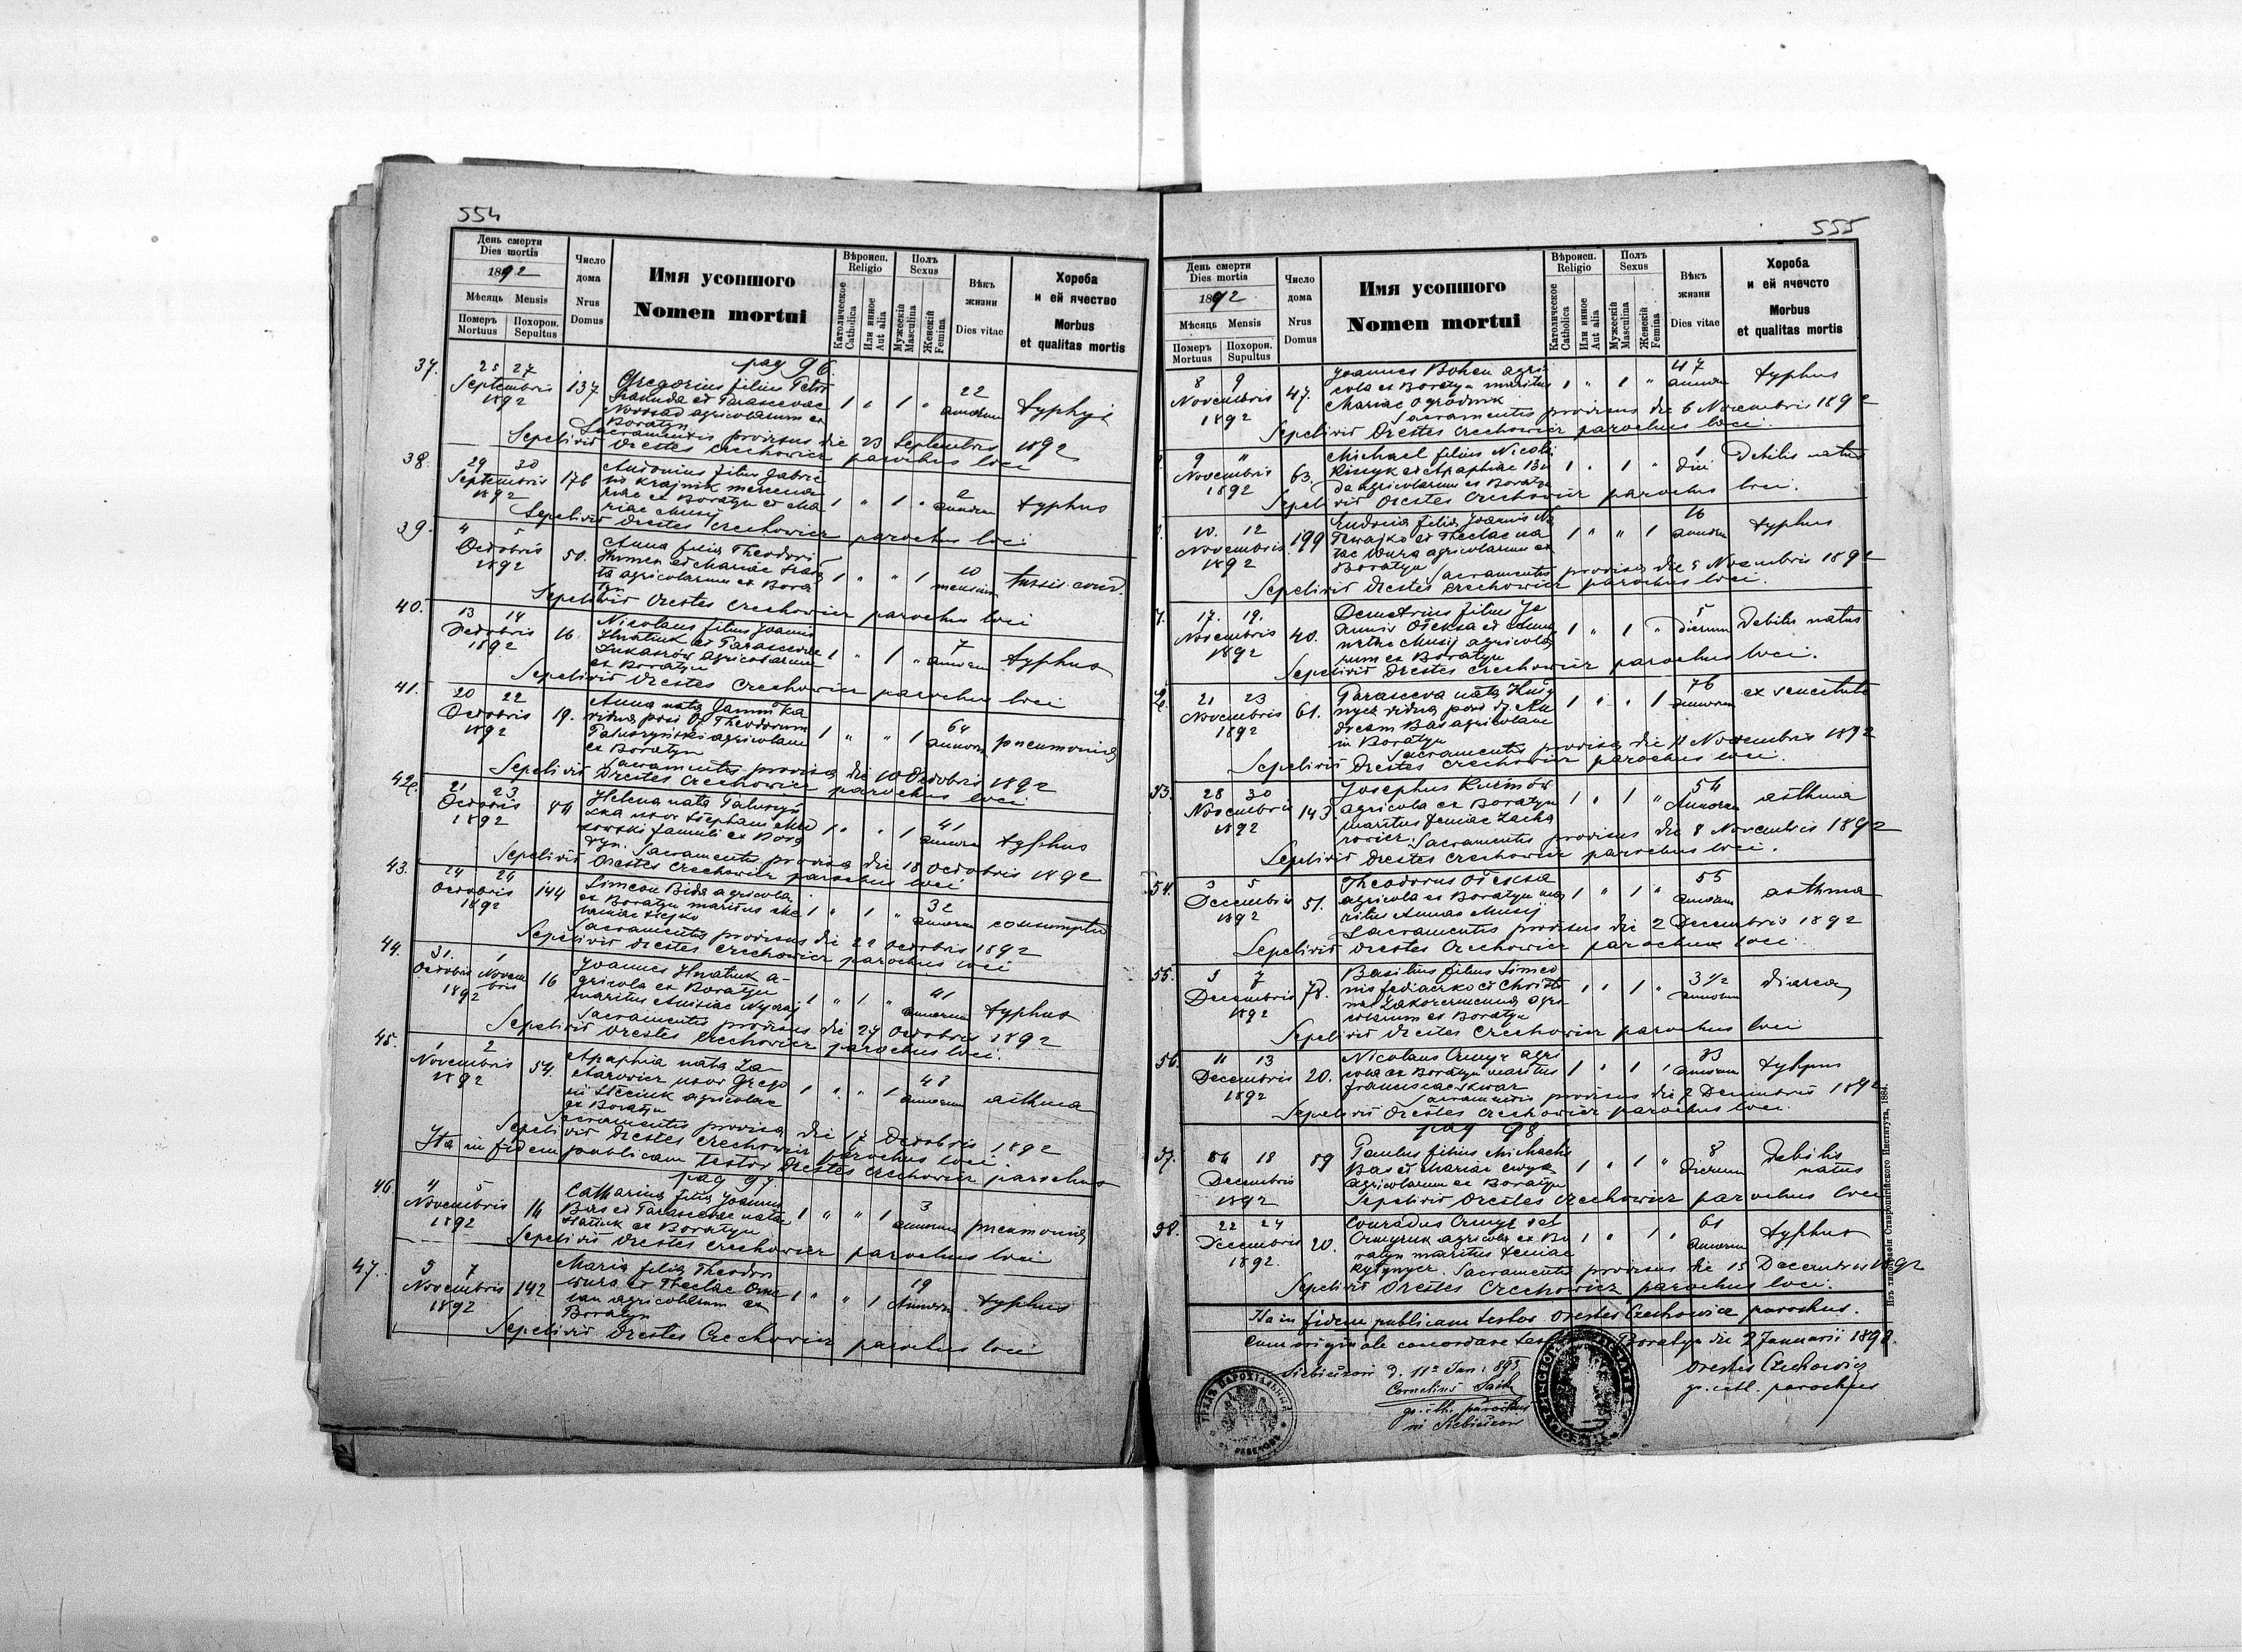 554
День смерти
Dies mortis
1892
Мѣсяць Mensis
Померъ Похорон.
Mortuus Sepultus
Число
дома
Nrus
Domus
Имя усопшого
Nomen mortui
Вѣроисп.
Religio
Католическое
Catholica
Или инное
Aut alia
Полъ
Sexus
Мужескій
Masculina
Женскій
Femina
Вѣкъ
жизни
Dies vitae
Хороба
и ей ячество
Morbus
et qualitas mortis
pag 96.
37. 25 27
Septembris 1892
137
Gregorius filius Petri
et Parascevae
Novosad agricolarum ex
Boratyn
1 " 1 "
22 annorum
typhus
Sacramentis provisus die 23 Septembris 1892
Sepelivit Orestes Czechowicz parochus loci
38. 29 30
Septembris 1892
176
Antonius filius Gabrie
lis Krajnik mercena
riae ex Boratyn et Ma
riae Musij
1 " 1 "
2 annorum
typhus
Sepelivit Orestes Czechowicz parochus loci
39. 4 5
Octobris 1892
50.
Anna filia Theodori
et Mariae
agricolarum ex Bora
tyn
1 " " 1
10 mensium
tussis conv.
Sepelivit Orestes Czechowicz parochus loci
40. 13 14
Octobris 1892
16
Nicolaus filius Joannis
Hnatiuk et Parascevae
Łukaszów agricolarum
ex Boratyn
1 " 1 "
7 annorum
typhus
Sepelivit Orestes Czechowicz parochus loci
41. 20 22
Octobris 1892
19.
Anna nata
vidua post Theodorum
Paluszyński agricolam
ex Boratyn
1 " " 1
64 annorum
pneumonia
Sacramentis provisa die 10 Octobris 1892
Sepelivit Orestes Czechowicz parochus loci
42. 21 23
Octobris 1892
Helena nata Paluszyń
ska uxor Stephani
famuli ex Bora
tyn. Sacramentis provisa die 18 Octobris 1892
1 " " 1
41 annorum
typhus
Sepelivit Orestes Czechowicz parochus loci
43. 24 24
Octobris 1892
144
Simeon Bida agricola
ex Boratyn maritus Me
laniae
1 " 1 "
32 annorum
consumptio
Sacramentis provisus die 22 Octobris 1892
Sepelivit Orestes Czechowicz parochus loci
44. 31. 1
Octobris Novembris
1892
16
Joannes Hnatiuk a-
gricola ex Boratyn
maritus
1 " 1 "
41 annorum
typhus
Sacramentis provisus die 24 Octobris 1892
Sepelivit Orestes Czechowicz parochus loci.
45. 1 2
Novembris 1892
54.
Agaphia nata Za-
charowicz uxor Grego
rii agricolae
ex Boratyn
1 " " 1
48 annorum
asthma
Sacramentis provisa die 17 Octobris 1892
Sepelivit Orestes Czechowicz parochus loci.
Ita in fidem publicam testor Orestes Czechowicz parochus
pag 97
46. 4 5
Novembris 1892
14
Catharina filia Joannis
Bas et Parascevae nata
ex Boratyn
1 " " 1
3 annorum
pneumonia
Sepelivit Orestes Czechowicz parochus loci
47. 5 7
Novembris 1892
142
Maria filia Theodori
Wura et Theclae
agricolarum ex
Boratyn
1 " " 1
19 Annorum
typhus
Sepelivit Orestes Czechowicz parochus loci
555
День смерти
Dies mortis
1892
Мѣсяць Mensis
Померъ Похорон.
Mortuus Supultus
Число
дома
Nrus
Domus
Имя усопшого
Nomen mortui
Вѣроисп.
Religio
Католическое
Catholica
Или инное
Aut alia
Полъ
Sexus
Мужескій
Masculina
Женскій
Femina
Вѣкъ
жизни
Dies vitae
Хороба
и ей ячечсто
Morbus
et qualitas mortis
8 9
Novembris 1892
47.
Joannes Bohen agri-
cola ex Boratyn maritus
Mariae Ogrodnik
1 " 1 "
47 annorum
typhus
Sacramentis provisus die 6 Novembris 1892
Sepelivit Orestes Czechowicz parochus loci.
9 "
Novembris 1892
63.
Michael filius Nicolai
et Agaphiae Bu
da agricolarum ex Boratyn
1 " 1 "
1 diei
Debilis natus
Sepelivit Orestes Czechowicz parochus loci.
10. 12
Novembris 1892
199
Eudocia filia Joannis
et Theclae na
tae Wura agricolarum ex
Boratyn
1 " " 1
16 annorum
typhus
Sacramentis provisa die 5 Novembris 1892
Sepelivit Orestes Czechowicz parochus loci.
17. 19.
Novembris 1892
40.
Demetrius filius Jo
annis Ołeksa et
Musij agricola
rum ex Boratyn
1 " 1 "
5 dierum
Debilis natus
Sepelivit Orestes Czechowicz parochus loci.
21 23
Novembris 1892
61.
Parasceva nata
vidua post An
dream Bas agricolam
in Boratyn
1 " " 1
76 annorum
ex senectute
Sacramentis provisa die 11 Novembris 1892
Sepelivit Orestes Czechowicz parochus loci.
53. 28 30
Novembris 1892
143.
Josephus
agricola ex Boratyn
maritus Xeniae Zacha
rowicz. Sacramentis provisus die 8 Novembris 1892
1 " 1 "
54 Annorum
asthma
Sepelivit Orestes Czechowicz parochus loci.
54. 3 5
Decembris 1892
51.
Theodorus Ołeksa
agricola ex Boratyn ma
ritus Annae Musij
1 " 1 "
55 annorum
asthma
Sacramentis provisus die 2 Decembris 1892
Sepelivit Orestes Czechowicz parochus loci
55. 5 7
Decembris 1892
78.
Basilius filius Simeo
nis Fediaczko et Christi
nae agri
colarum ex Boratyn
1 " 1 "
3 1/2 annorum
diarea
Sepelivit Orestes Czechowicz parochus loci
56. 11 13
Decembris 1892
20.
Nicolaus Czmyr agri
cola ex Boratyn maritus
Franciscae
1 " 1 "
33 annorum
typhus
Sacramentis provisus die 2 Decembris 1892
Sepelivit Orestes Czechowicz parochus loci.
pag 98
57. 16 18
Decembris 1892
89
Paulus filius Michaelis
Bas et Mariae
agricolarum ex Boratyn
1 " 1 "
8 Dierum
Debilis
natus
Sepelivit Orestes Czechowicz parochus loci
58. 22 24
Decembris 1892.
20.
Conradus Czmyr vel
Czmyruk agricola ex Bo
ratyn maritus Xeniae
Sacramentis provisus die 15 Decembris 1892
1 " 1 "
61 annorum
typhus
Sepelivit Orestes Czechowicz parochus loci.
Ita in fidem publicam testor Orestes Czechowicz parochus.
Cum originale concordare Boratyn die 9 Januarii 1893.
d. 11a Jan. 893
Cornelius
gr. cth. parochus
in
Orestes Czechowicz
gr. catl. parochus
Изъ типографіи Ставропигійского Института, 1884.